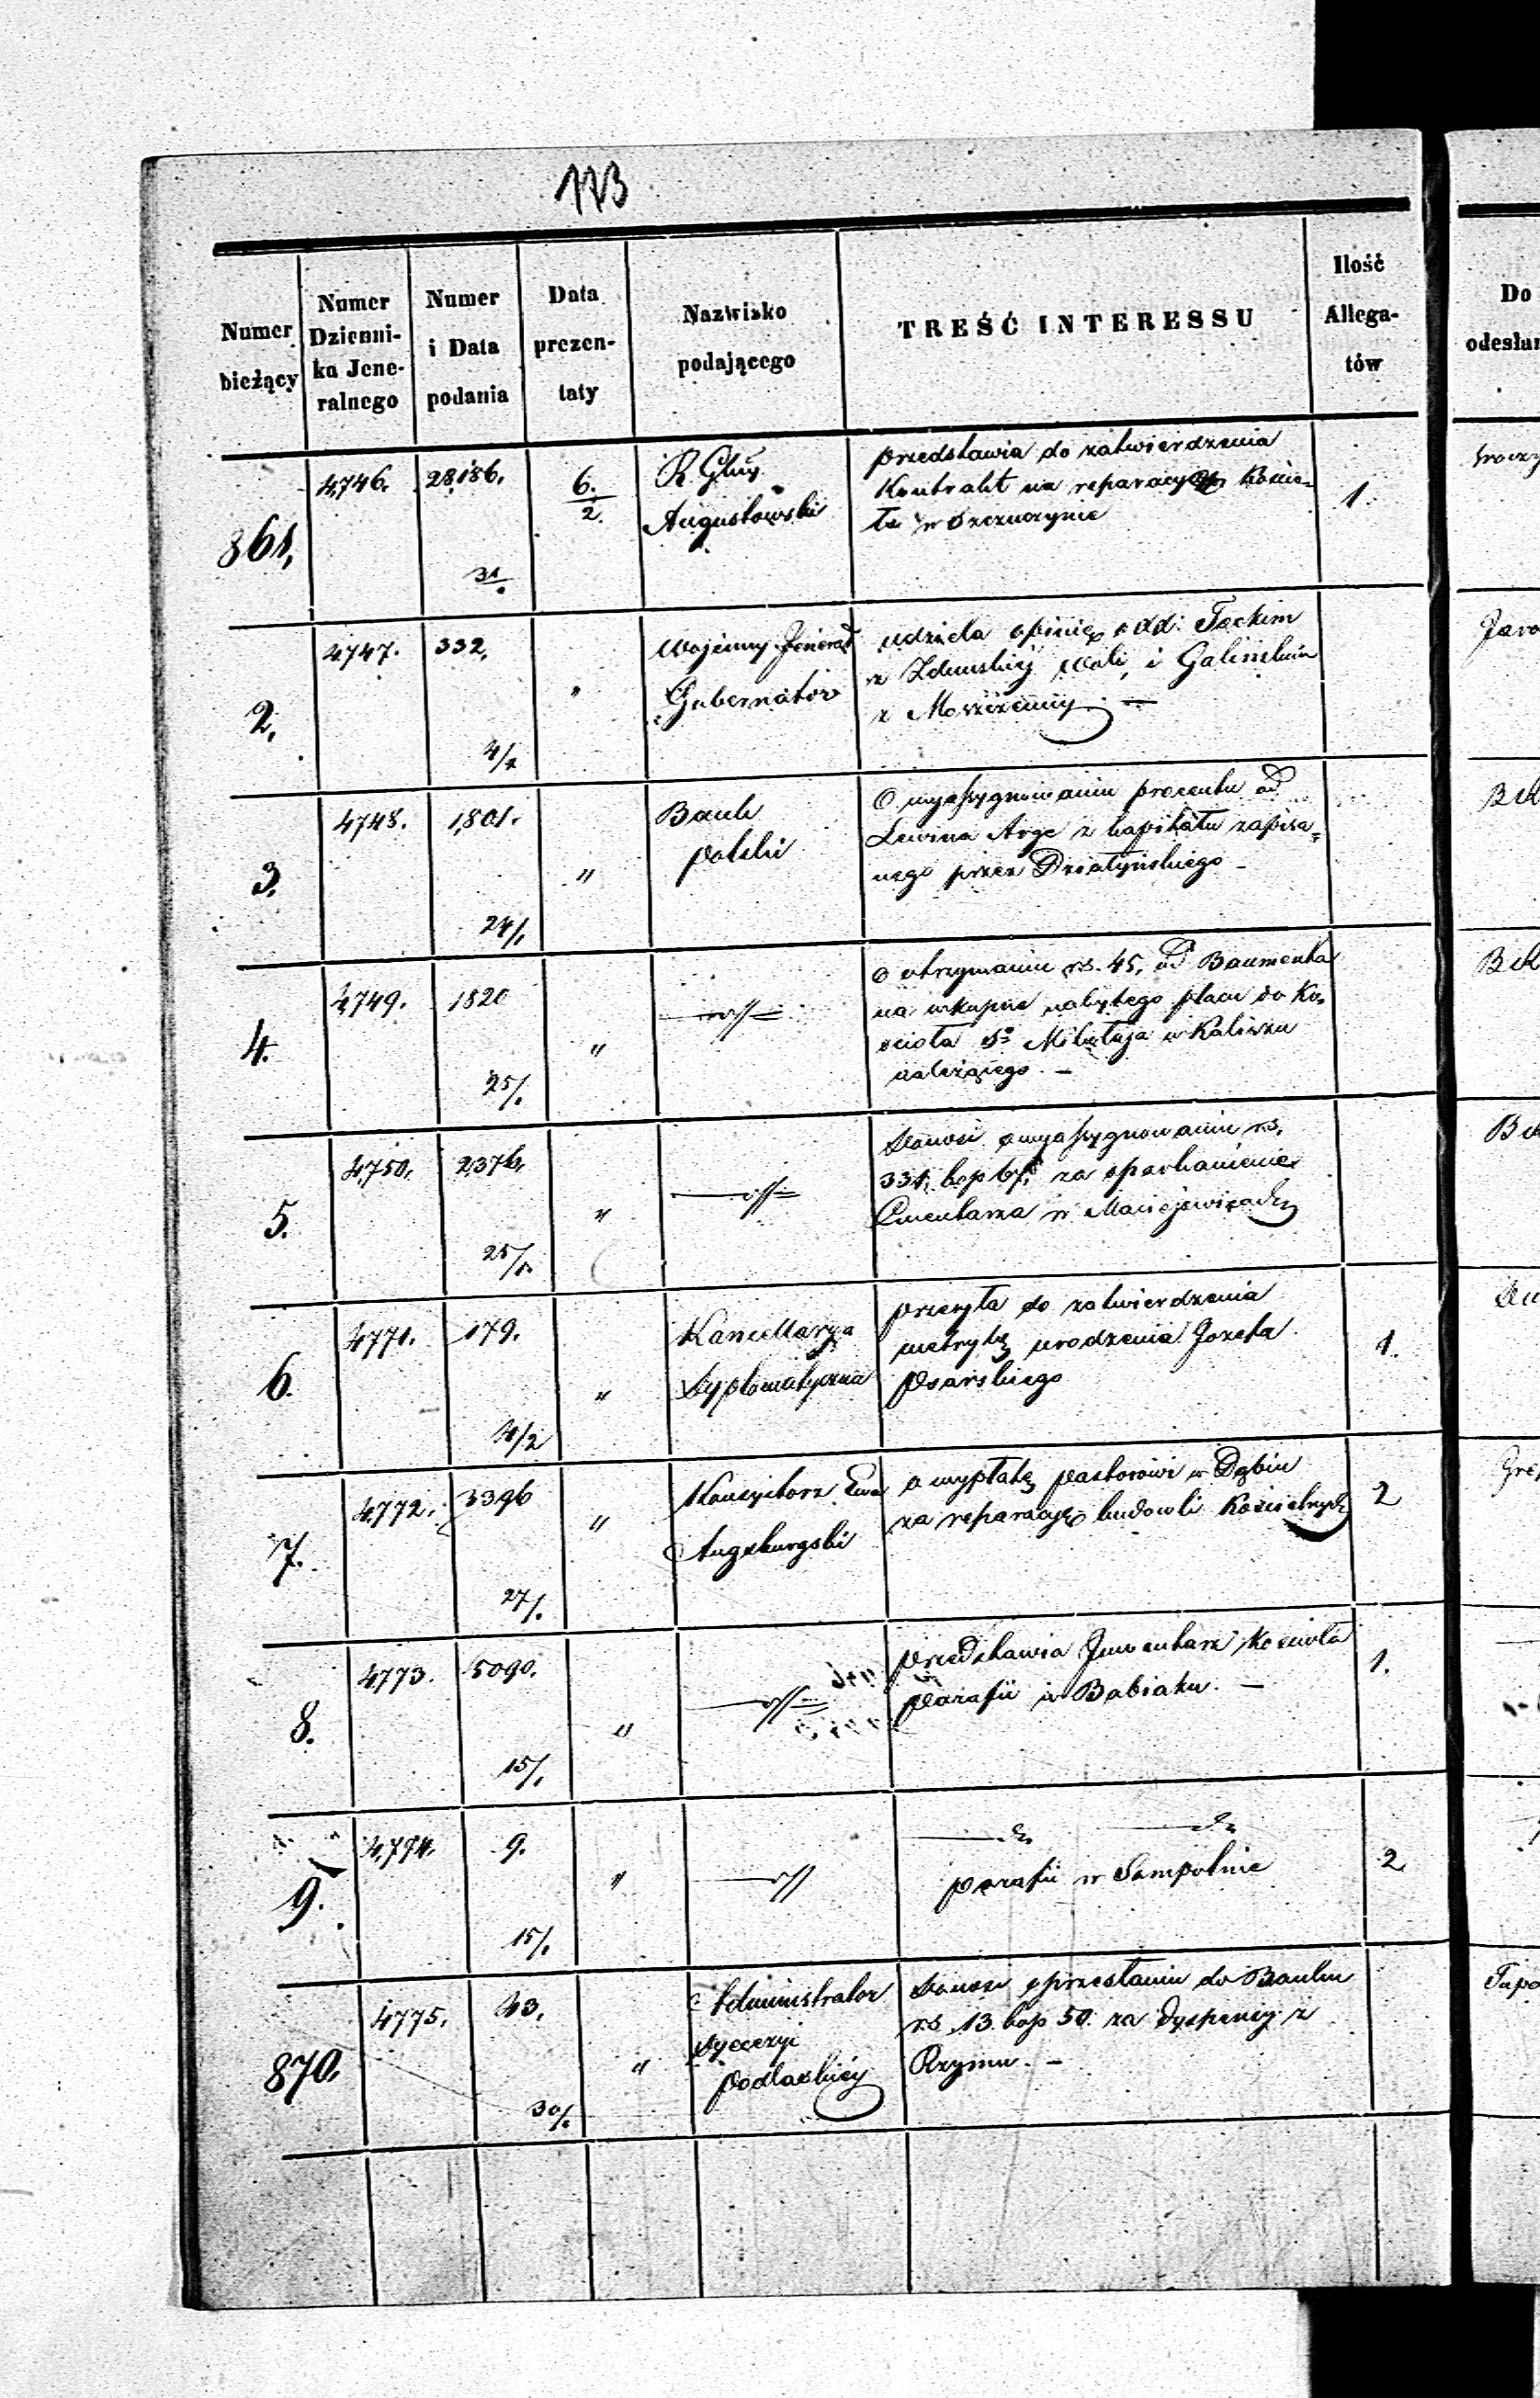 173
Numer bieżący
Numer Dzienni-ka Jene-ralnego
Numer i Data podania
Data prezen-taty
Nazwisko podającego
TREŚĆ INTERESSU
Ilość Allega-tów
Do
861. 4746. 28186. 31/. 6./2.
R. Głuy
Augustowski
przedstawia do zatwierdzenia
Kontrakt na reparacye Kościo-
ła w Szczuczynie
1.
2. 4747. 332. 4/2 "
Wojenny Jenerał
Gubernator
udziela opinię o dd:
z Zduńskiej Woli, i
z
3. 4748. 1,801. 24/. "
Bank
polski
O wyassygnowaniu procentu od
Lewina Arge z kapitału zapisa-
nego przez Działyńskiego –
4. 4749. 1820 25/. "
O otrzymaniu rs. 45, od
na wkupne nabytego placu do Ko-
ścioła Sgo Mikołaja w Kaliszu
należącego. –
5. 4750. 2376. 25/. "
Donosi o wyassygnowaniu rs.
331, kop 67, za oparkanienie
Cmentarza w Maciejowicach
6. 4771. 179. 4/2 "
Kancellarya
Dyplomatyczna
przesyła do zatwierdzenia
metrykę urodzenia Jozefa
Psarskiego
1.
7. 4772. 3396 27/. "
Konsystorz Ewa
Augsburgski
o wypłatę pastorowi w Dąbiu
za reparacyę budowli Kościelnych
2
8. 4773. 5090. 15/. "
przedstawia Inwentarz Kościoła
parafii w Babiaku. –
1.
9. 4,794. 9. 15/. "
— do — do
parafii w Sompolnie
2
870. 4775. 43. 30/. "
Administrator
Dyecezyi
podlaskiéy
Donosi o przesłaniu do Banku
rs. 13. kop 50. za dyspensy z
Rzymu. –